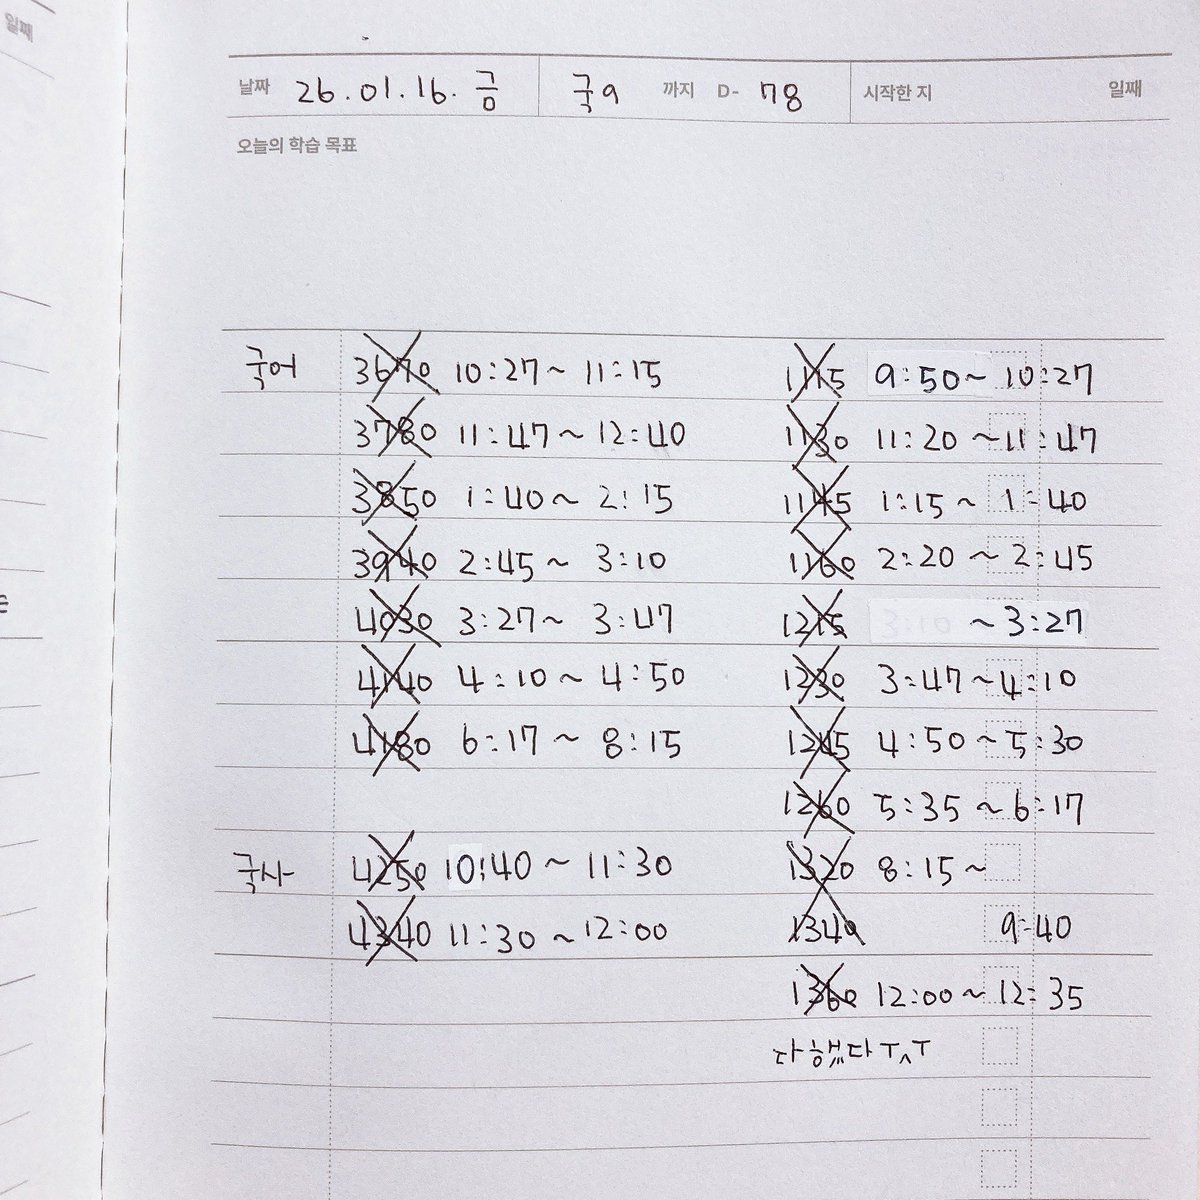 일째
날짜 26.01.16. 금 국9 까지 D- 78 시작한 지 일째
오늘의 학습 목표
국어 3670 10:27~ 11:15 1115 9:50~ 10:27
3780 11:47~ 12:40 1130 11:20 ~11:47
3850 1:40~ 2:15 1145 1:15~ 1:40
3940 2:45~ 3:10 1160 2:20 ~ 2:45
4030 3:27~ 3:47 1215 ~3:27
4140 4:10 ~ 4:50 1230 3:47 ~4:10
4180 6:17 ~ 8:15 1245 4:50 ~5:30
1260 5:35 ~6:17
국사 4250 10:40 ~ 11:30 1320 8:15~
4340 11:30 ~12:00 1340 9:40
1360 12:00~ 12:35
다했다ㅜㅅㅜ